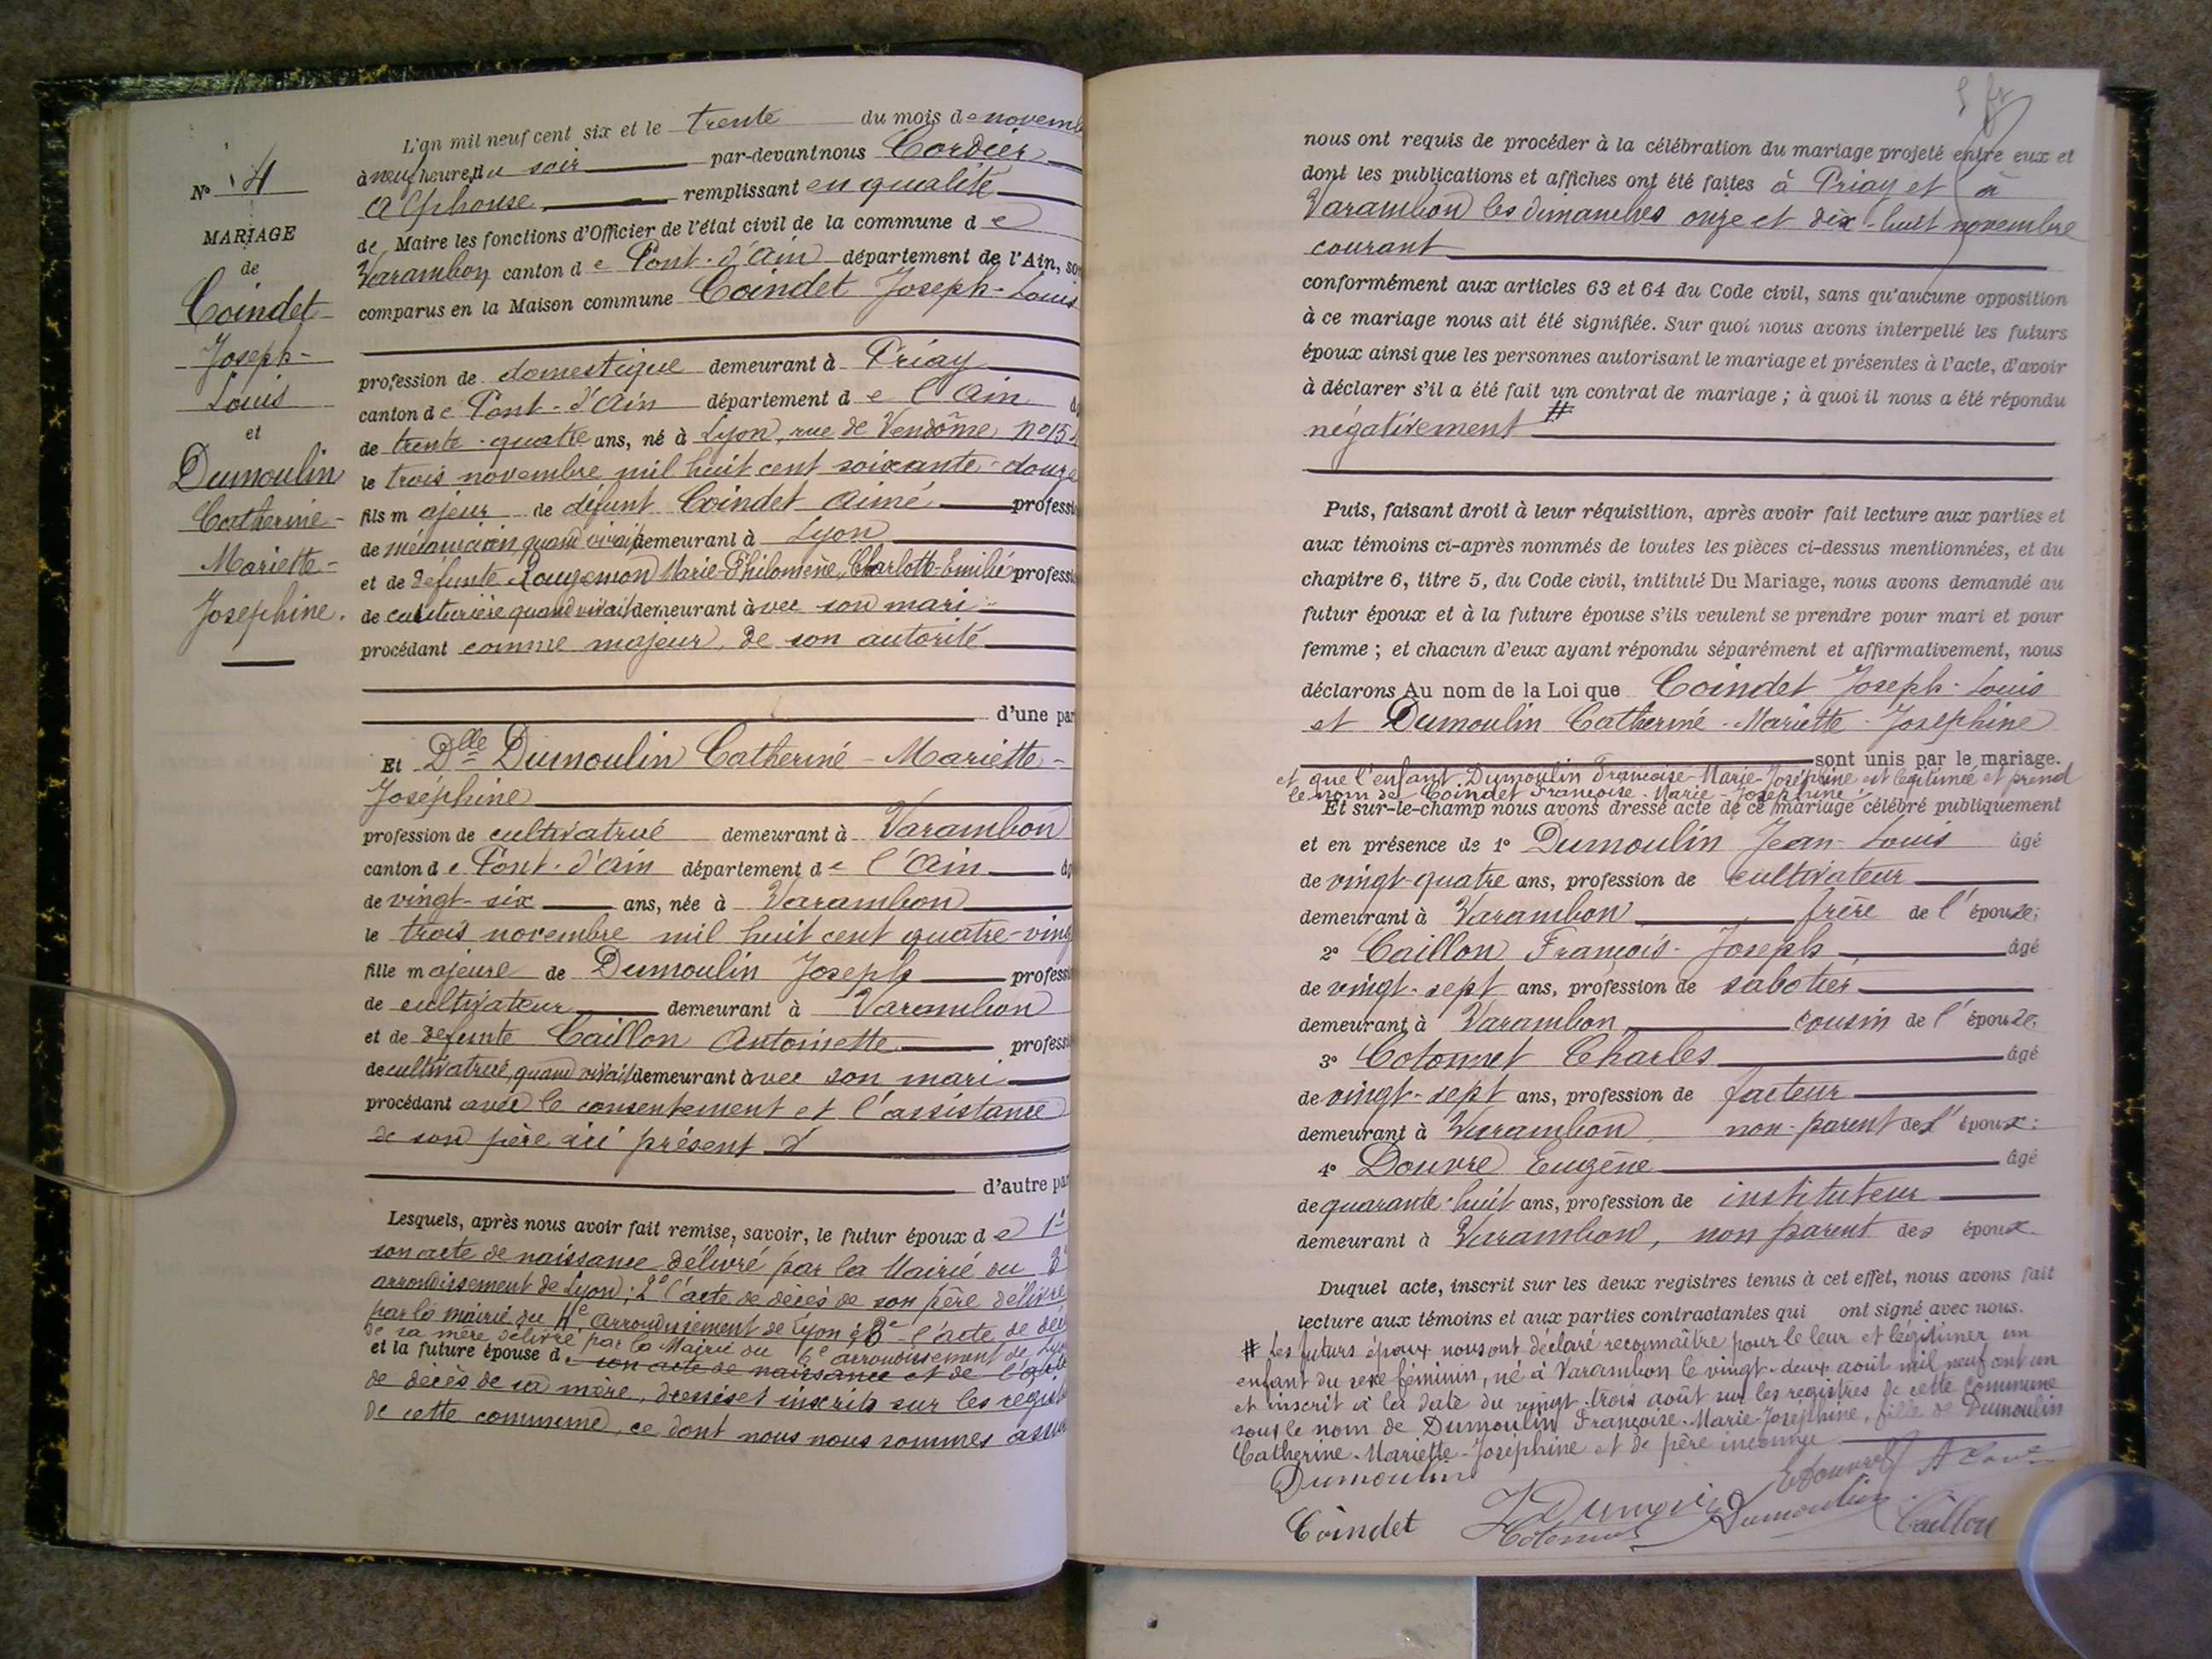 N° 4
MARIAGE
de
Coindet
Joseph-
Louis
et
Dumoulin
Catherine-
Mariette-
Josephine.
L'an mil neuf cent six et le trente du mois de novemb
à neuf heures du soir par-devant nous Cordier
Alphonse remplissant en qualité
de Maire les fonctions d'Officier de l'état civil de la commune de
Varambon canton de Pont-d'Ain département de l'Ain, so
comparus en la Maison commune Coindet Joseph-Louis
profession de domestique demeurant à Priay
canton de Pont-d'Ain département de l'Ain
de trente-quatre ans, né à Lyon, rue de Vendôme, n°
le trois novembre mil huit cent soixante-douze
fils majeur de défunt Coindet Aimé professi
de mécanicien quand vivait demeurant à Lyon
et de défunte Rougemon Marie-Philomène, Charlotte-Emilie professi
de couturière quand vivait demeurant avec son mari
procédant comme majeur, de son autorité
d'une par
Et Dlle Dumoulin Catherine-Mariette-
Joséphine
profession de cultivatrice demeurant à Varambon
canton de Pont-d'Ain département de l'Ain
de vingt-six ans, née à Varambon
le trois novembre mil huit cent quatre-ving
fille majeure de Dumoulin Joseph professi
de cultivateur demeurant à Varambon
et de défunte Caillon Antoinette professi
de cultivatrice, quand vivait demeurant avec son mari
procédant avec le consentement et l'assistance
de son père ici présent
d'autre par
Lesquels, après nous avoir fait remise, savoir, le futur époux de 1°
son acte de naissance délivré par la Mairie du 3e
arrondissement de Lyon; 2° l'acte de décès de son père délivré
par la mairie du 4e arrondissement de Lyon & 3° l'acte de déc
de sa mère délivré par la Mairie du 6e arrondissement de Ly
et la future épouse de son acte de naissance et de l'acte
de décès de sa mère, dressés et inscrits sur les regist
de cette commune, ce dont nous nous sommes assu
5 fr
nous ont requis de procéder à la célébration du mariage projeté entre eux et
dont les publications et affiches ont été faites à Priay et à
Varambon les dimanches onze et dix-huit novembre
courant
conformément aux articles 63 et 64 du Code civil, sans qu'aucune opposition
à ce mariage nous ait été signifiée. Sur quoi nous avons interpellé les futurs
époux ainsi que les personnes autorisant le mariage et présentes à l'acte, d'avoir
à déclarer s'il a été fait un contrat de mariage ; à quoi il nous a été répondu
négativement #
Puis, faisant droit à leur réquisition, après avoir fait lecture aux parties et
aux témoins ci-après nommés de toutes les pièces ci-dessus mentionnées, et du
chapitre 6, titre 5, du Code civil, intitulé Du Mariage, nous avons demandé au
futur époux et à la future épouse s'ils veulent se prendre pour mari et pour
femme ; et chacun d'eux ayant répondu séparément et affirmativement, nous
déclarons Au nom de la Loi que Coindet Joseph-Louis
et Dumoulin Catherine-Mariette-Joséphine
sont unis par le mariage.
et que l'enfant Dumoulin Françoise-Marie-Joséphine est légitimée et prend
le nom de Coindet Françoise-Marie-Joséphine.
Et sur-le-champ nous avons dressé acte de ce mariage célébré publiquement
et en présence de 1° Dumoulin Jean-Louis âgé
de vingt-quatre ans, profession de cultivateur
demeurant à Varambon frère de l'épouse;
2° Caillon François-Joseph âgé
de vingt-sept ans, profession de sabotier
demeurant à Varambon cousin de l'épouse;
3° Cotonnet Charles âgé
de vingt-sept ans, profession de facteur
demeurant à Varambon non-parent des époux;
4° Douvre Eugène âgé
de quarante-huit ans, profession de instituteur
demeurant à Varambon, non parent des époux.
Duquel acte, inscrit sur les deux registres tenus à cet effet, nous avons fait
lecture aux témoins et aux parties contractantes qui ont signé avec nous.
# Les futurs époux nous ont déclaré reconnaître pour le leur et légitimer un
enfant du sexe féminin, né à Varambon le vingt-deux août mil neuf cent un
et inscrit à la date du vingt-trois août sur les registres de cette commune
sous le nom de Dumoulin Françoise-Marie-Joséphine, fille de Dumoulin
Catherine-Mariette-Joséphine et de père inconnu
Dumoulin EDouvre
Coindet J Dumoulin Dumoulin Caillon
Cotonnet